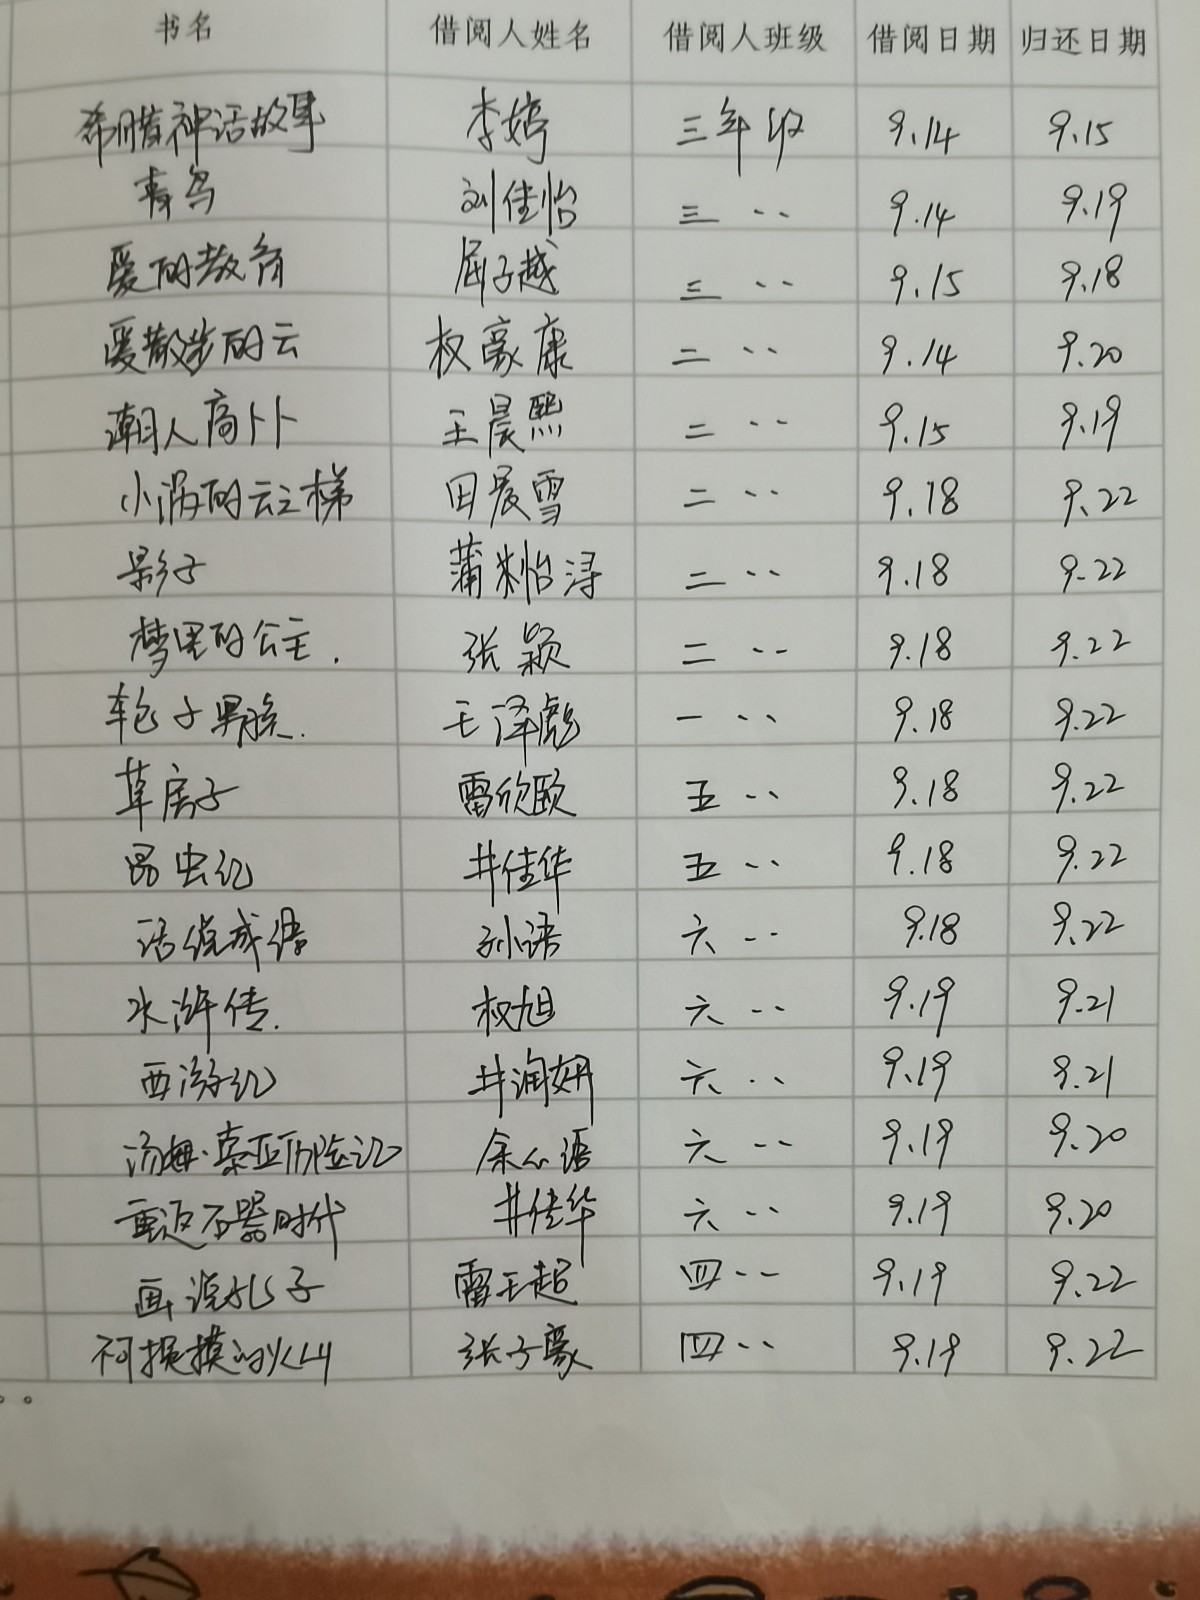 书名 借阅人姓名 借阅人班级 借阅日期 归还日期
希腊神话故事 李婷 三年级 9.14 9.15
青鸟 刘佳怡 三 ‥ 9.14 9.19
爱的教育 屈子越 三 ‥ 9.15 9.18
爱散步的云 权豪康 二 ‥ 9.14 9.20
潮人高卜卜 王晨熙 二 ‥ 9.15 9.19
小涡的云之梯 田晨雪 二 ‥ 9.18 9.22
影子 蒲怡浔 二 ‥ 9.18 9.22
梦里的公主. 张颖 二 ‥ 9.18 9.22
轮子男孩. 王泽彪 一 ‥ 9.18 9.22
草房子 雷欣欧 五 ‥ 9.18 9.22
昆虫记 井佳华 五 ‥ 9.18 9.22
话说成语 孙语 六 ‥ 9.18 9.22
水浒传. 权旭 六 ‥ 9.19 9.21
西游记 井润妍 六 ‥ 9.19 9.21
汤姆·索亚历险记 余心语 六 ‥ 9.19 9.20
重返石器时代 井佳华 六 ‥ 9.19 9.20
画说孔子 雷王超 四 ‥ 9.19 9.22
的火山 张子豪 四 ‥ 9.19 9.22